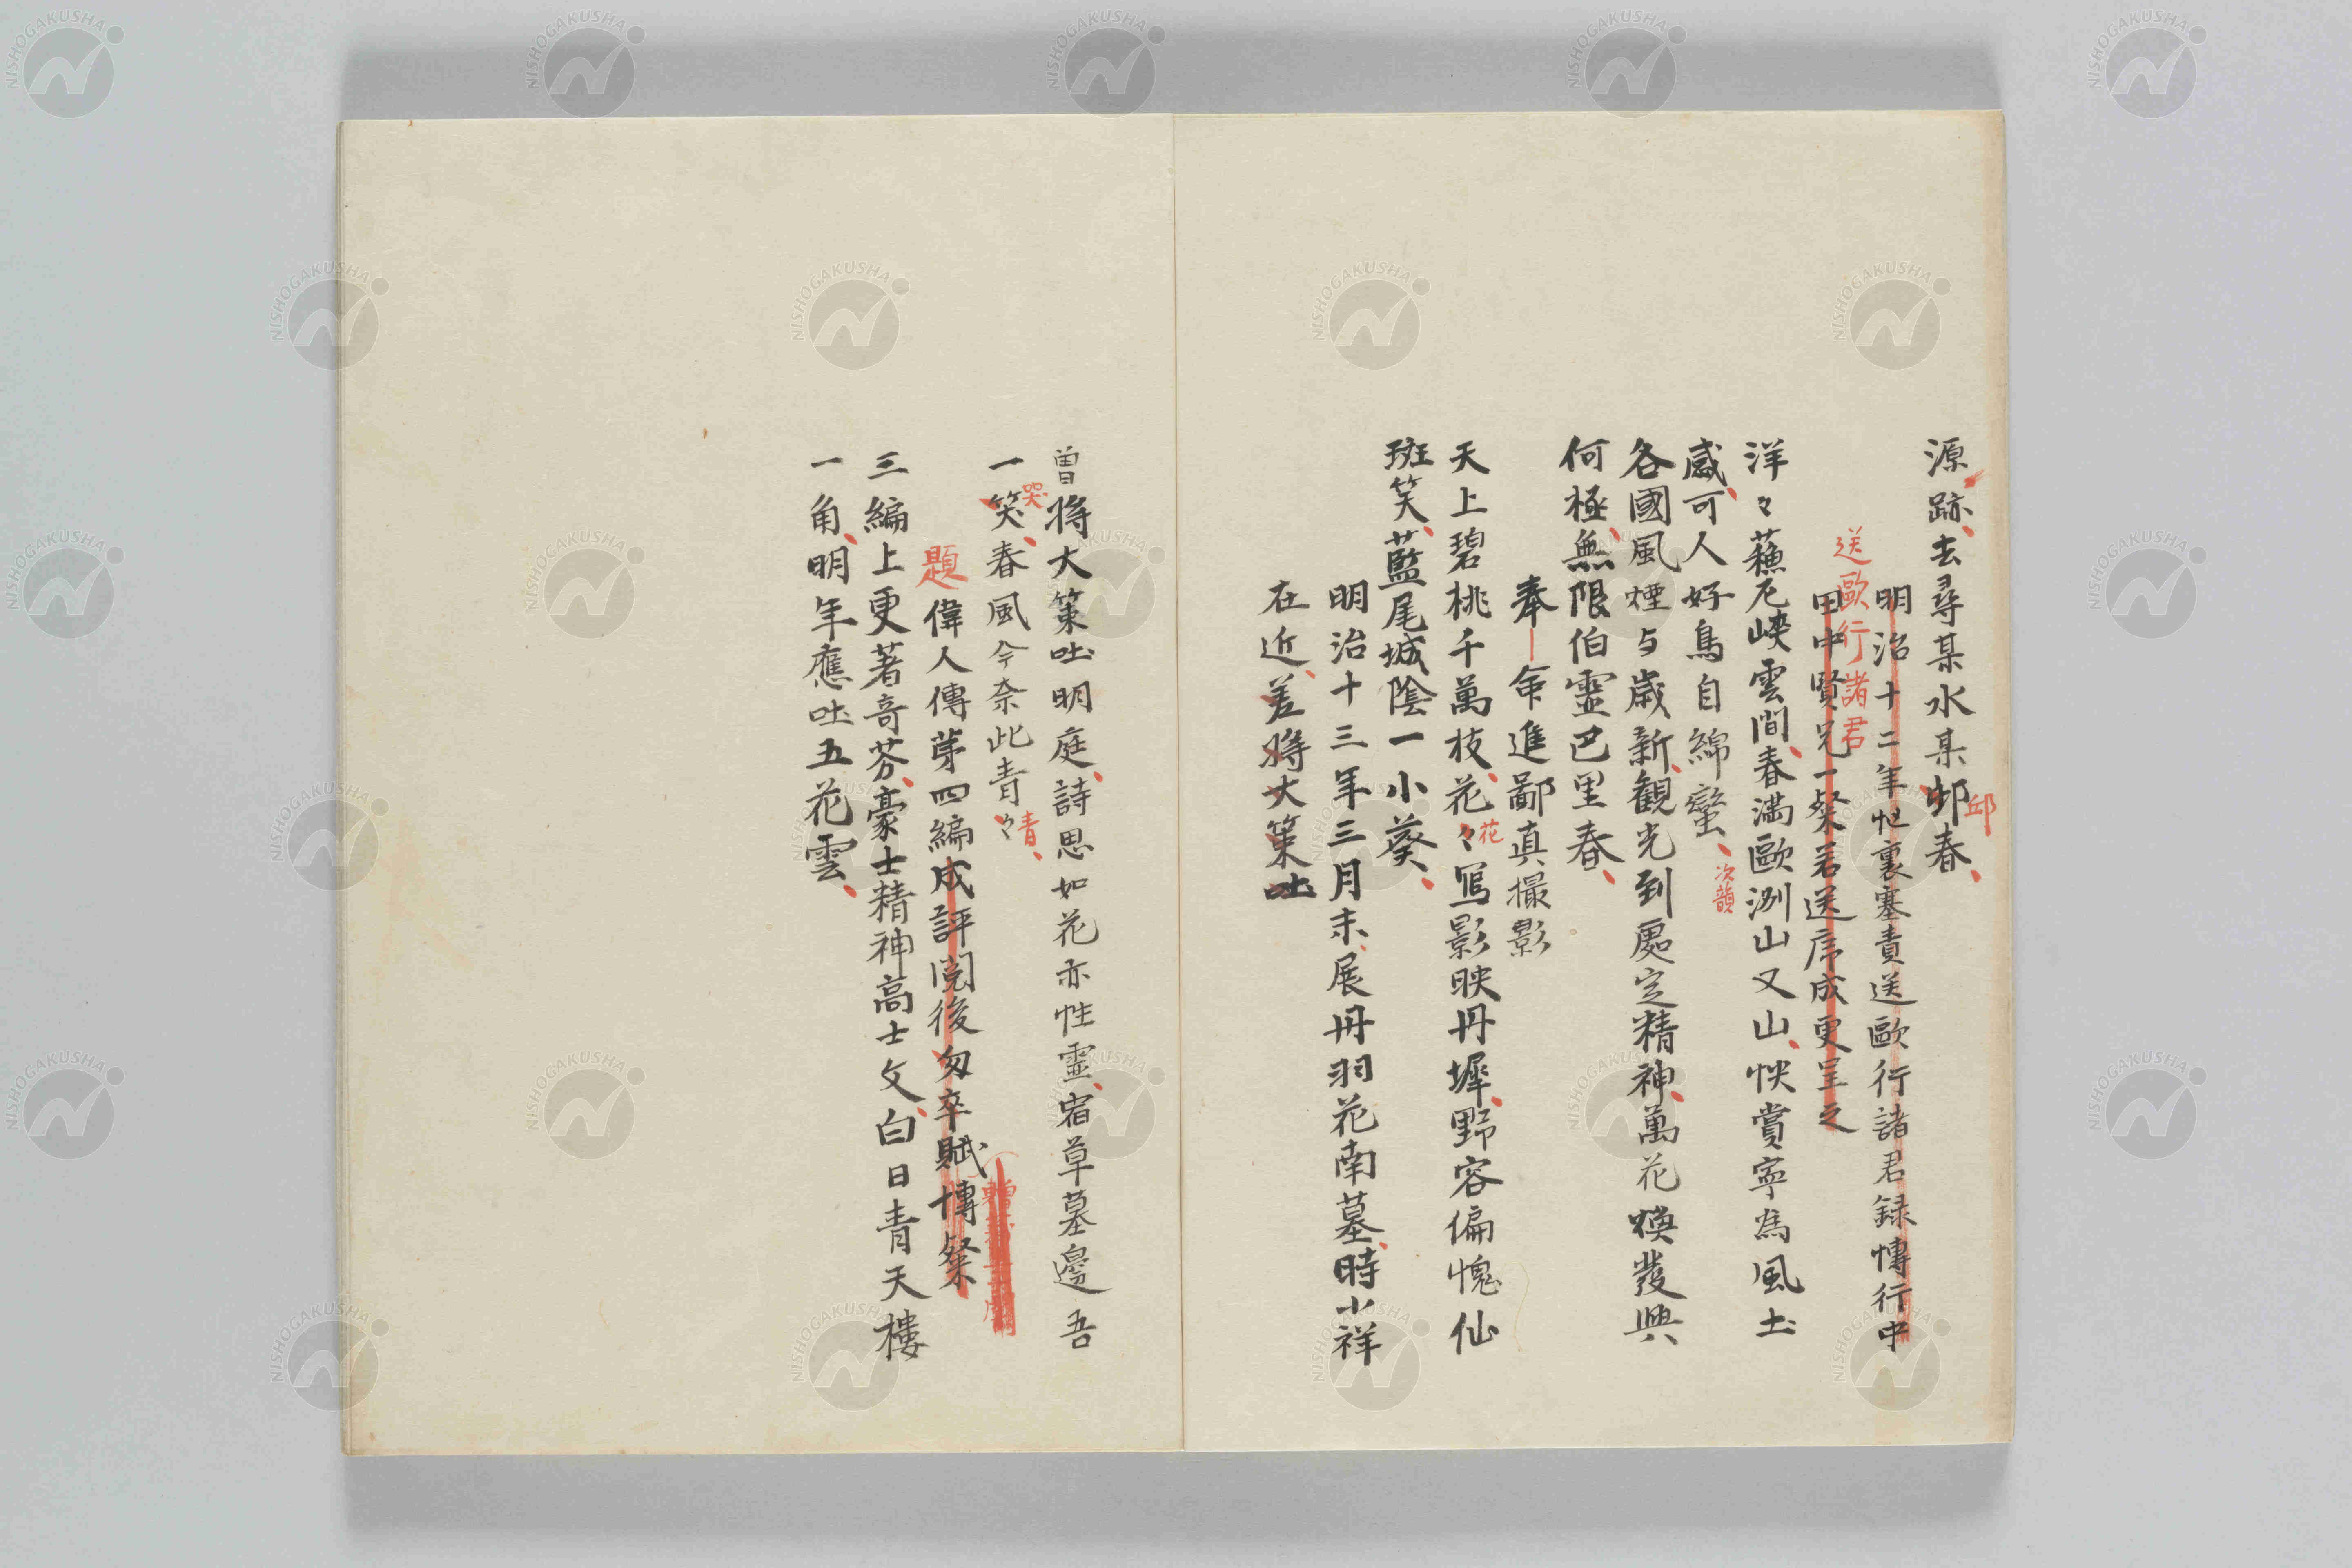 源跡去尋某水某邨春
邱
明治十二年忙裏塞責送歐行諸君録博行中
送歐行諸君
田中賢兄一粲君送序成更呈之
洋々蘓尼峽雲間春満歐洌山又山怏賞寧為風土
感可人好鳥自綿蠻
次韻
各國風煙与歳新観光到處定精神萬花煥發興
何極無限伯靈巴里春
奉命進鄙真撮影
天上碧桃千萬枝花々寫影映丹墀野容偏愧仙
花
班笑藍尾城陰一小葵
明治十三年三月末展丹羽花南墓時小祥
在近差將大策吐
曽將大策吐明庭詩思如花亦性霊宿草墓邊吾
一笑春風今奈此青々
哭
青
題
偉人傳芽四編成評閲後匆卒賦博粲
三編上更著奇芬豪士精神高士文白日青天樓
一角明年應吐五花雲
NISHOGAKUSHA